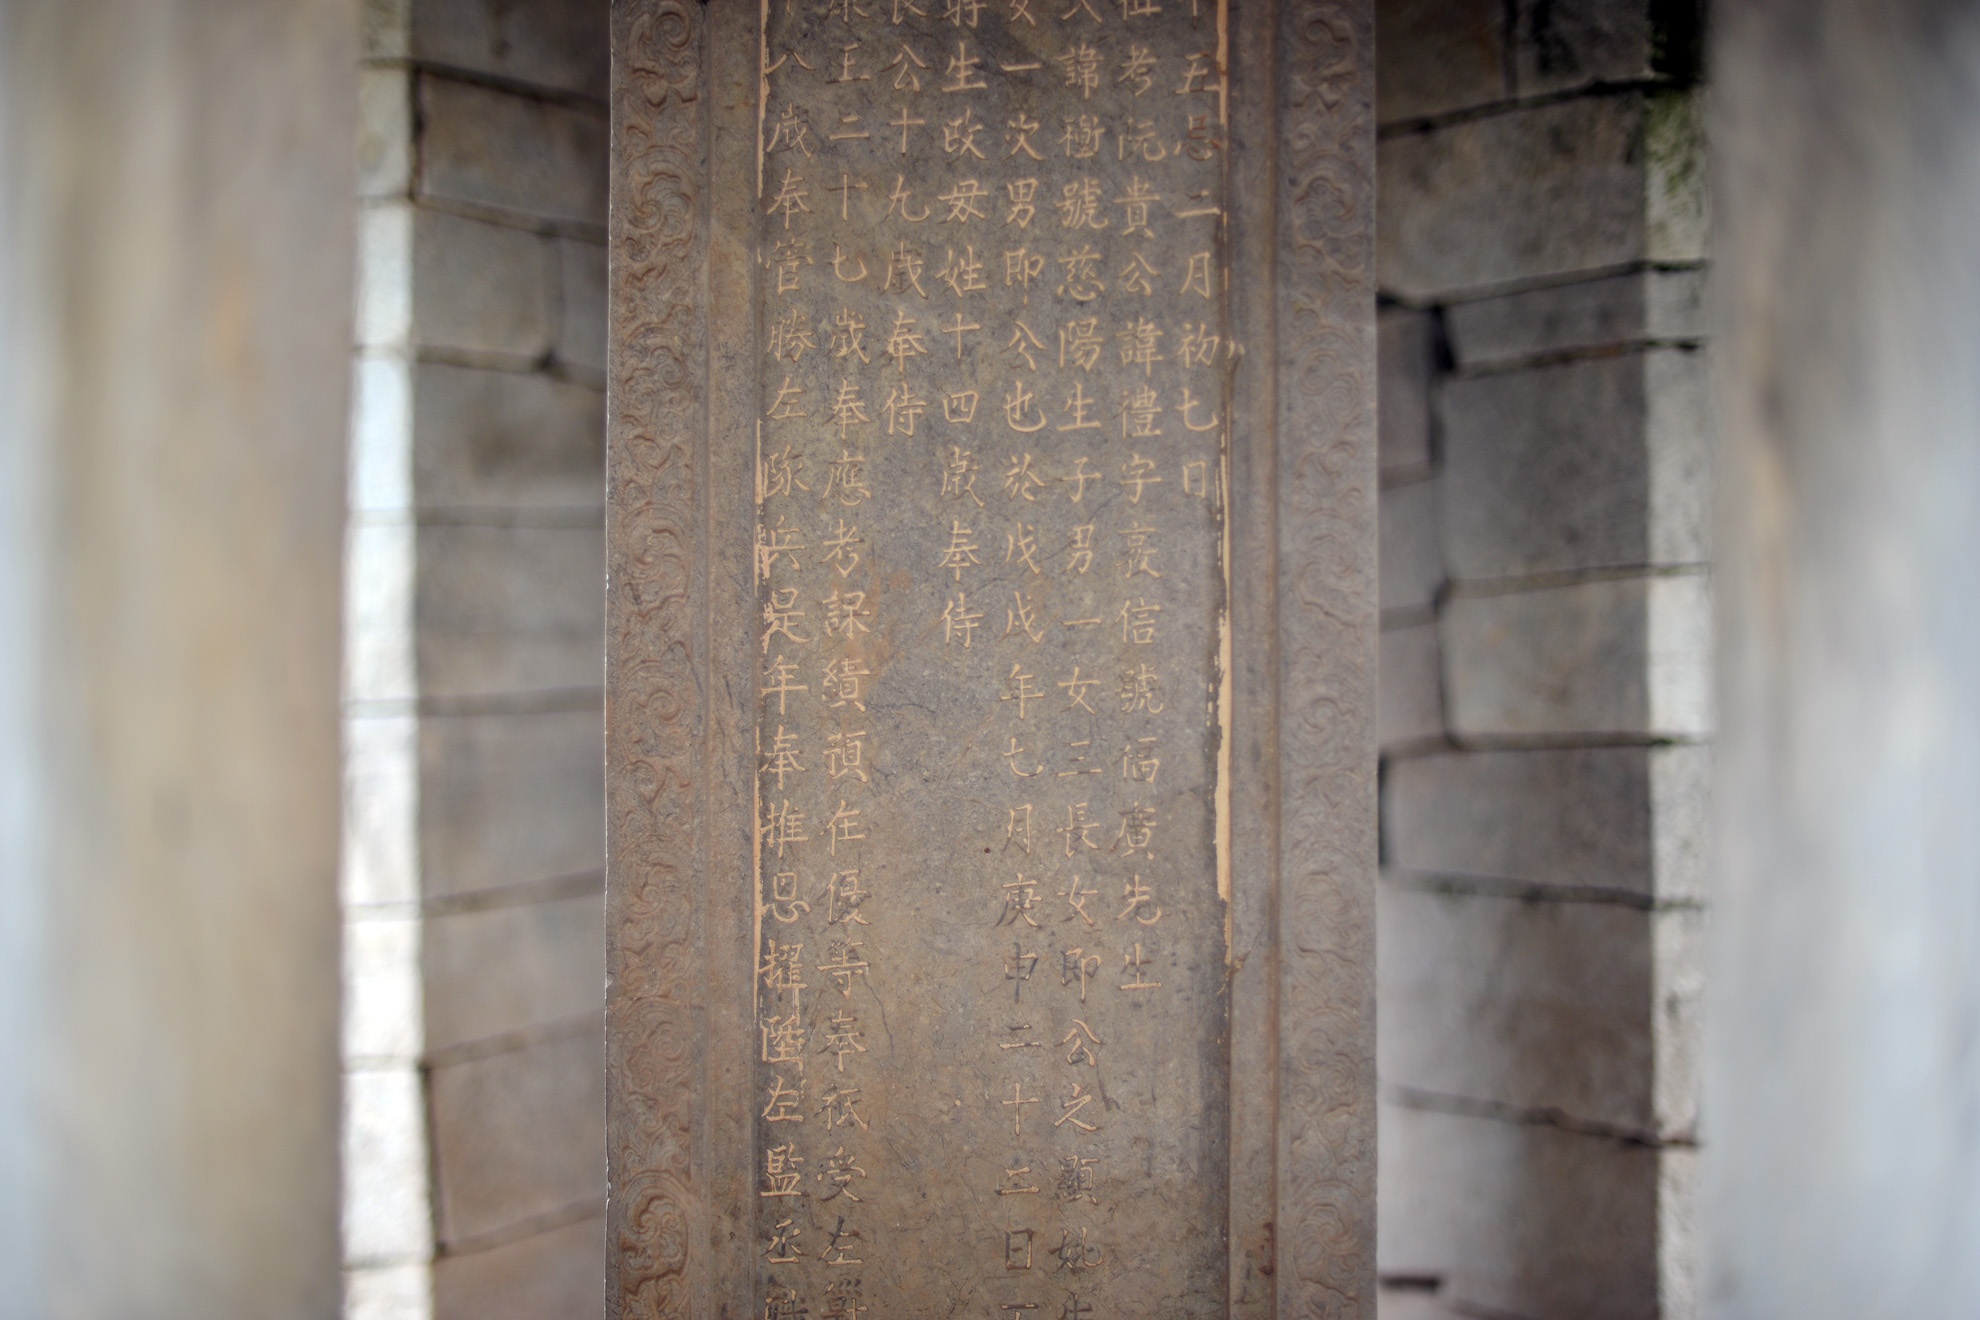 五忌二月初七日
考阮貴公諱禮字亮信號福廣先生
諱 號慈陽生子男一女三長女即公之顯妣生
一次男即公也於戊戌年七月庚申二十三日
生改母姓十四歲奉侍
公十九歲奉侍
王二十七歲奉應考課績預在優等奉祗受左
八歲奉管勝左隊兵是年奉推恩擢陞左監丞